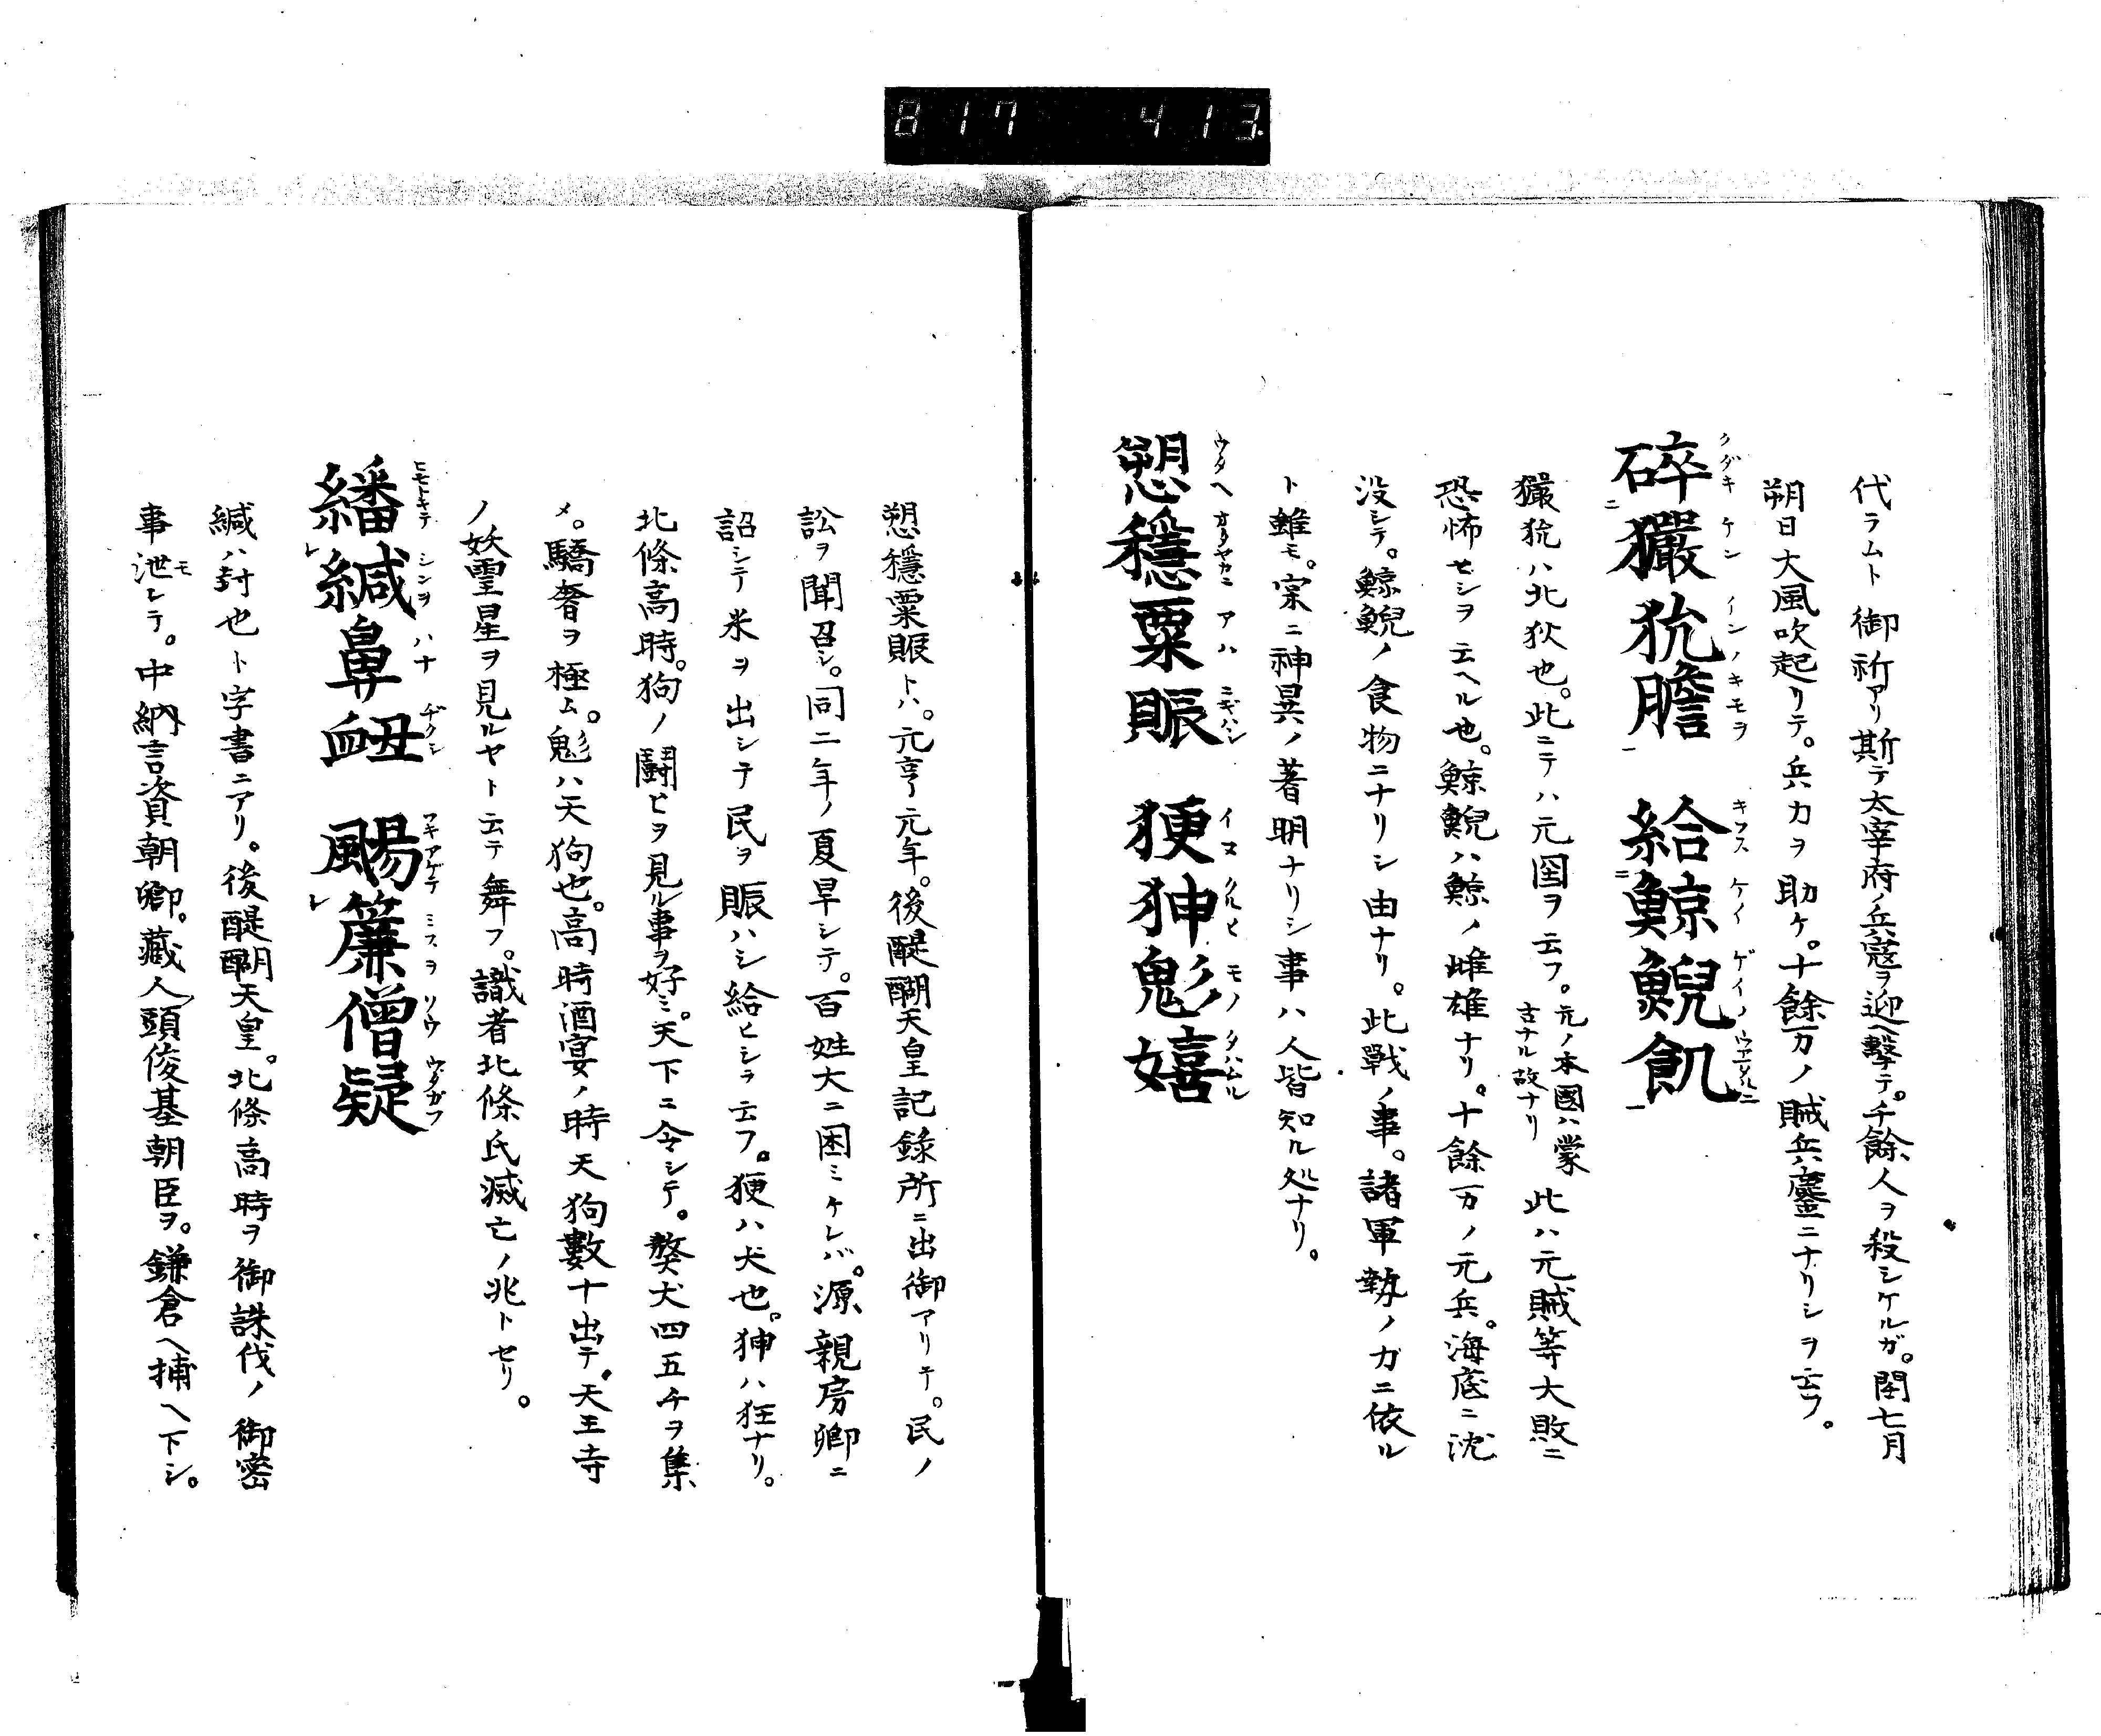 817 413
代ラムト御祈アリ斯テ太宰府ノ兵寇ヲ迎ヘ擊テ。千餘人ヲ殺シケルガ。閏七月
朔日大風吹起リテ。兵力ヲ助ケ。十餘万ノ賊兵鏖ニナリシヲ云フ。
碎玁狁膽 給鯨鯢飢
クダキ ケン インノ キモヲ キフス ケイ ゲイノ ウヱタルニ
玁狁ハ北狄也。此ニテハ元國ヲ云フ。元ノ本國ハ蒙古ナル故ナリ 此ハ元賊等大敗ニ
恐怖セシヲ云ヘル也。鯨鯢ハ鯨ノ雌雄ナリ。十餘万ノ元兵。海底ニ沈
没シテ。鯨鯢ノ食物ニナリシ由ナリ。此戰ノ事。諸軍勢ノ力ニ依ル
ト雖モ。宗ニ神異ノ著明ナリシ事ハ人皆知ル処ナリ。
愬穩粟賑 㹴狆鬽嬉
ウタヘ オダヤカニ アハ ニギハシ イヌ クルヒ モノ タハムル
愬穩粟賑トハ。元亨元年。後醍醐天皇記錄所ニ出御アリテ。民ノ
訟ヲ聞召シ。同二年ノ夏旱シテ。百姓大ニ困ミケレバ。源親房卿ニ
詔シテ米ヲ出シテ民ヲ賑ハシ給ヒシヲ云フ。㹴ハ犬也。狆ハ狂ナリ。
北條高時。狗ノ鬪ヒヲ見ル事ヲ好ミ。天下ニ令シテ。獒犬四五千ヲ集
メ。驕奢ヲ極ム。鬽ハ天狗也。高時酒宴ノ時天狗數十出テ。天王寺
ノ妖靈星ヲ見ルヤト云テ舞フ。識者北條氏滅亡ノ兆トセリ。
繙緘鼻衄 颺簾僧疑
ヒモトキテ シンヲ ハナ ヂクシ フキアゲテ ミスヲ ソウ ウタガフ
緘ハ封也ト字書ニアリ。後醍醐天皇。北條高時ヲ御誅伐ノ御密
事泄レテ。中納言資朝卿。藏人頭俊基朝臣ヲ。鎌倉ヘ捕ヘ下シ。